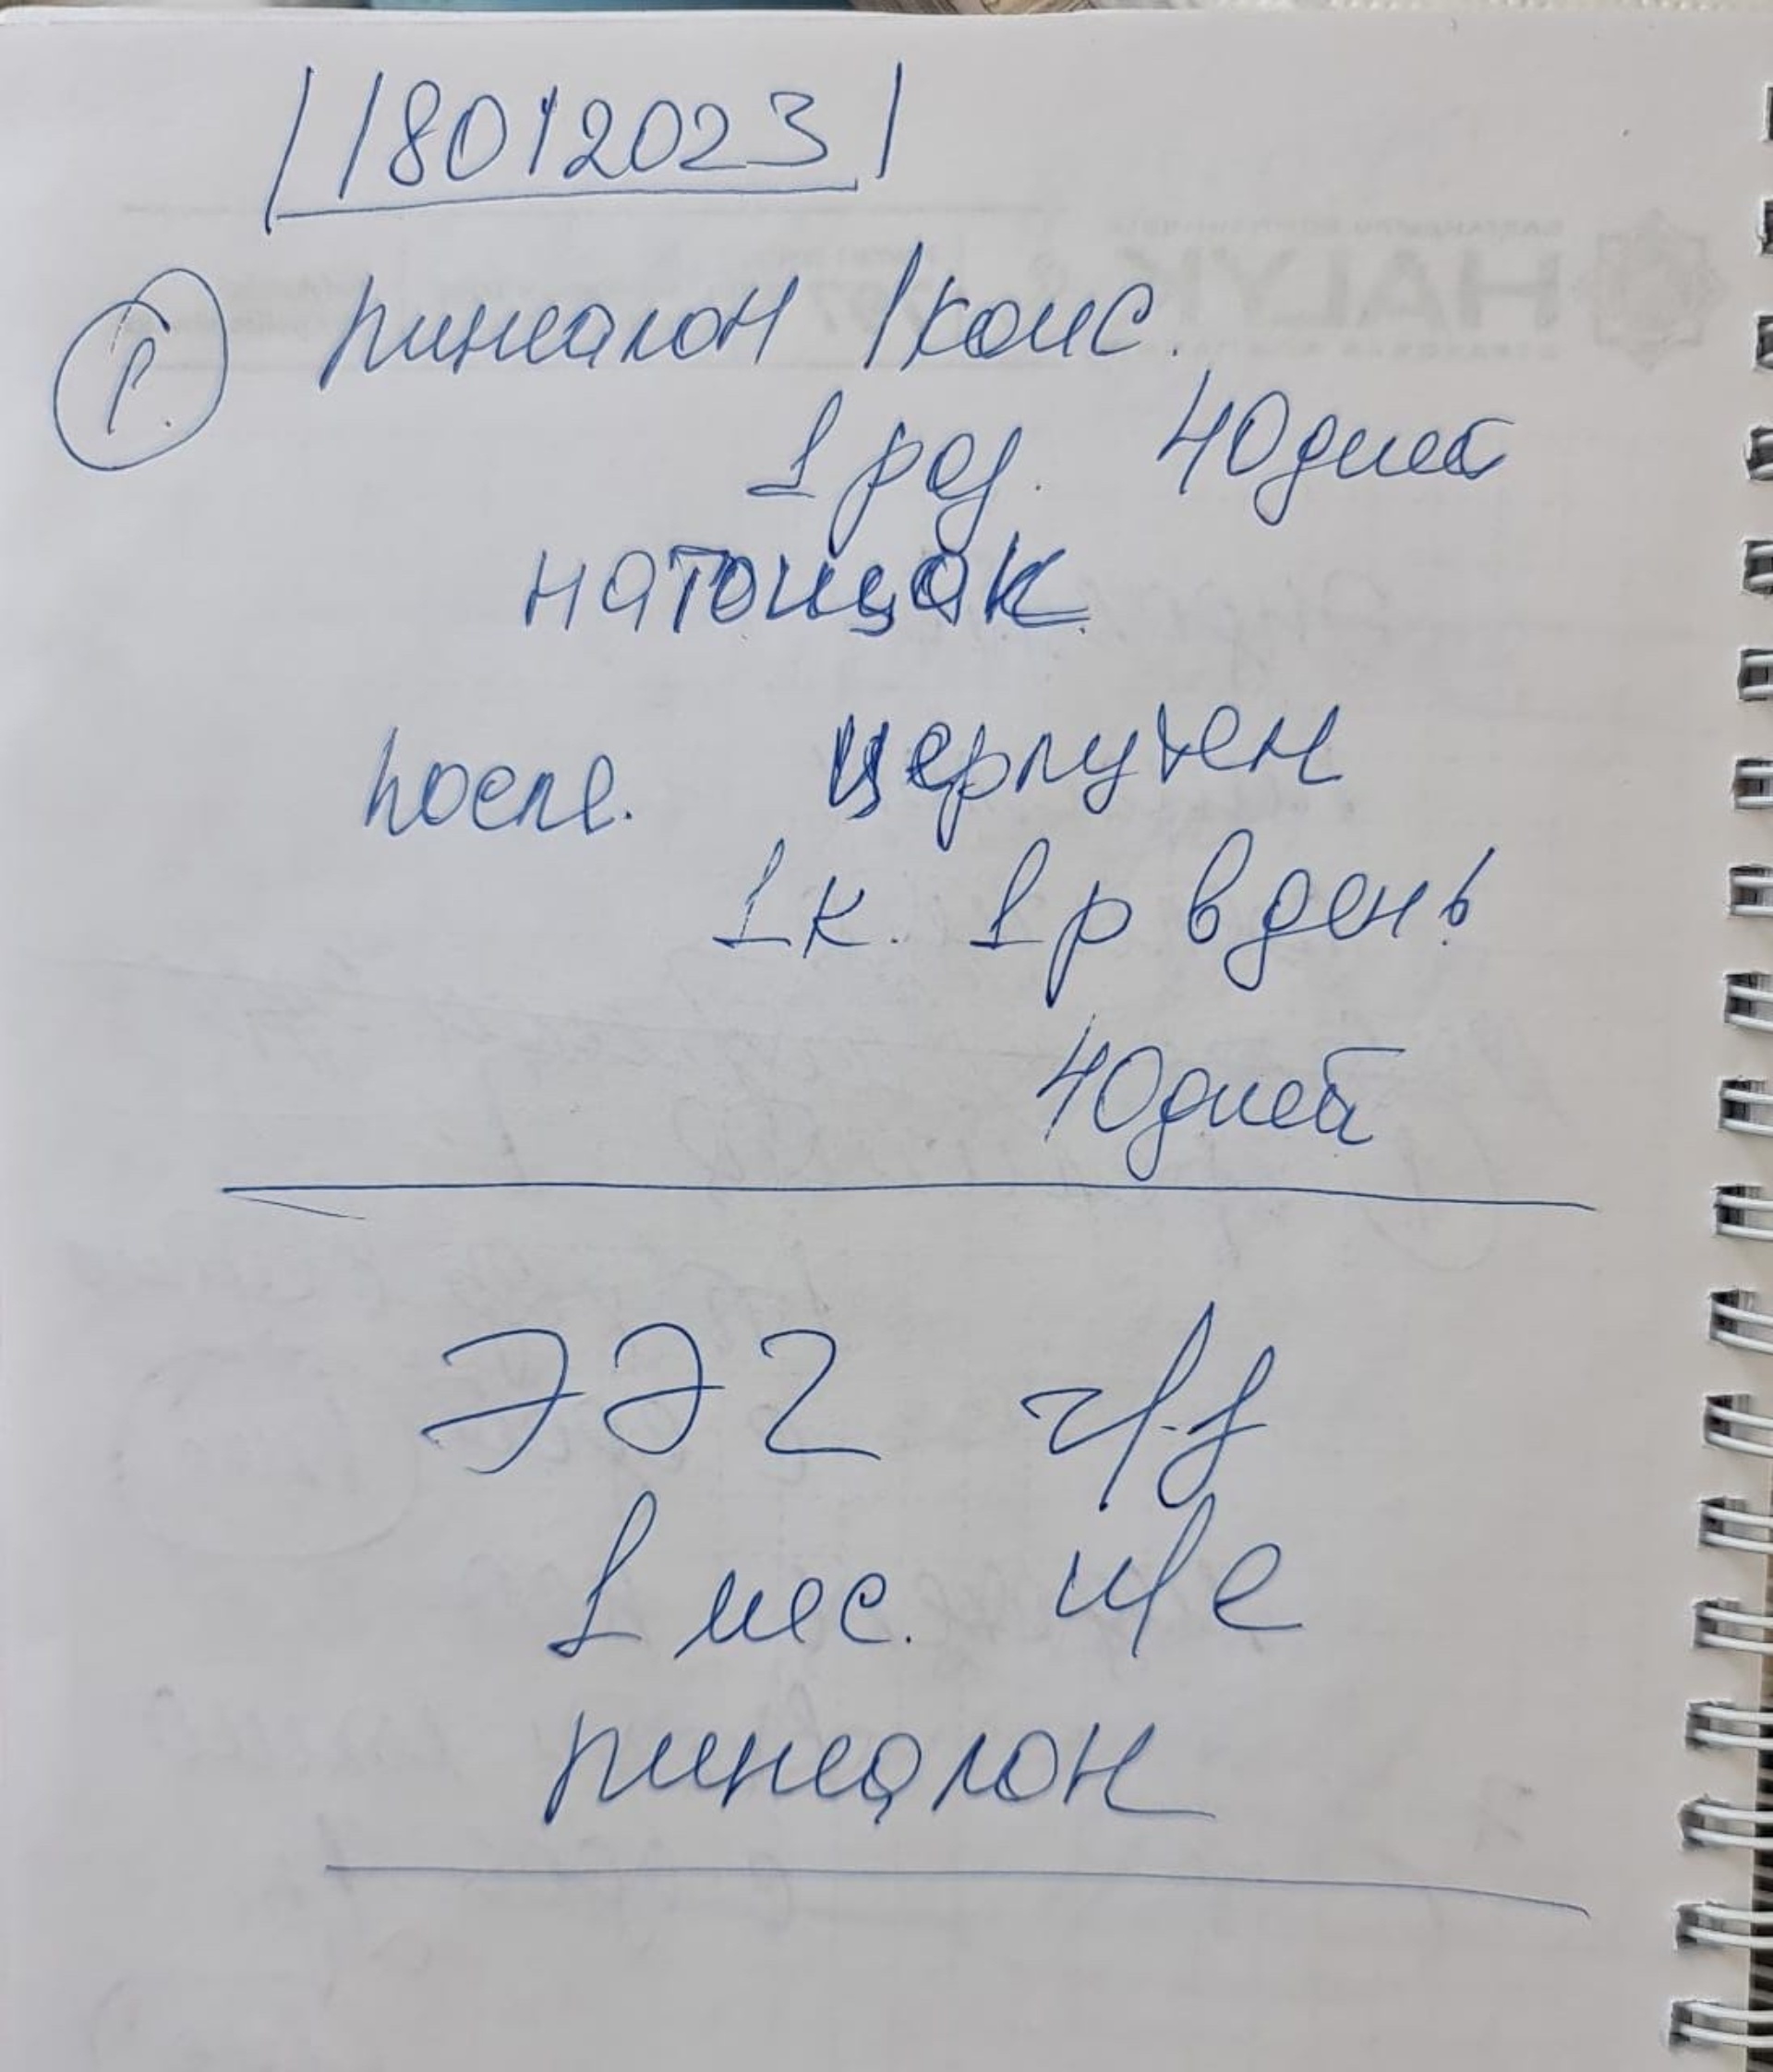 18012023
1. пинеалон 1 капс.
1 раз. 40 дней
натощак
после. церлутен
1 к. 1 р в день
40 дней
ЭЭГ ч/з
1 мес. п/е
пинеалон